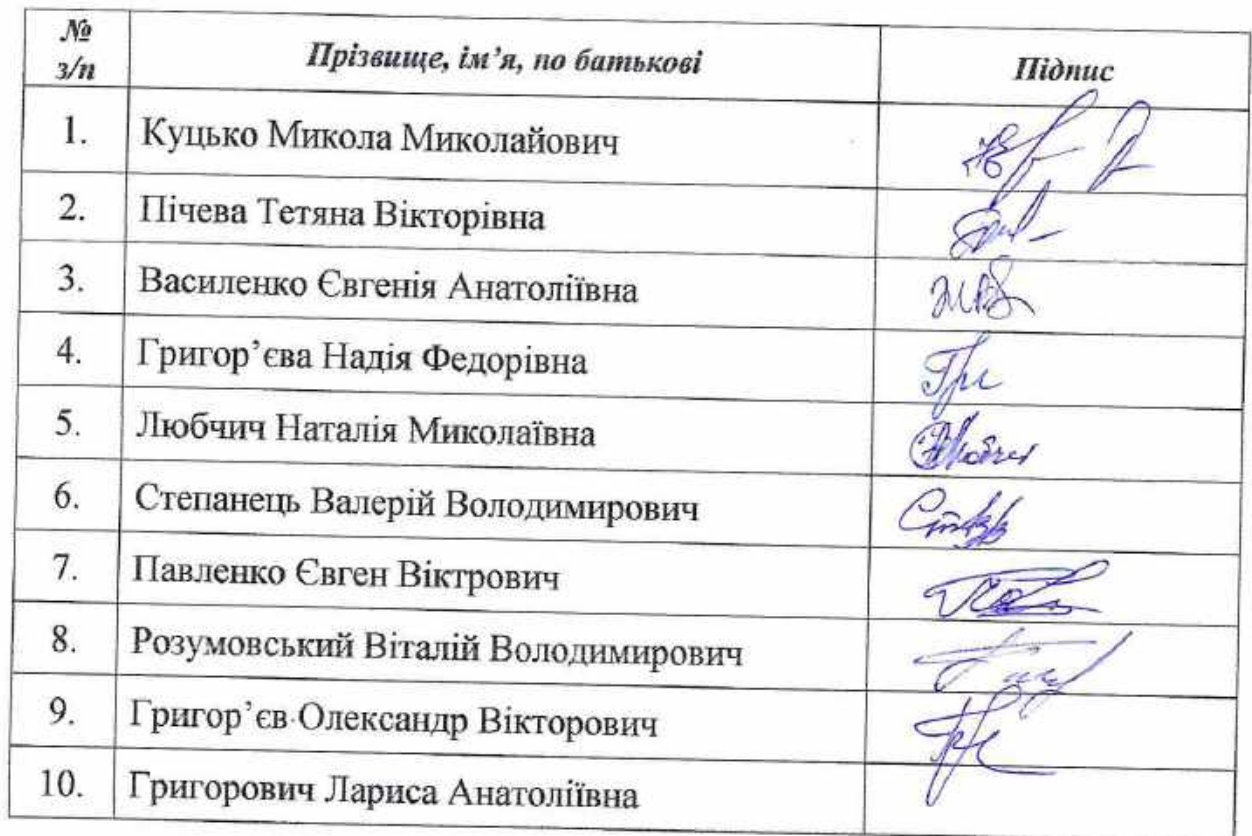 № з/п Прізвище, ім’я, по батькові Підпис
1. Куцько Микола Миколайович
2. Пічева Тетяна Вікторівна
3. Василенко Євгенія Анатоліївна
4. Григор’єва Надія Федорівна
5. Любчич Наталія Миколаївна
6. Степанець Валерій Володимирович
7. Павленко Євген Віктрович
8. Розумовський Віталій Володимирович
9. Григор’єв Олександр Вікторович
10. Григорович Лариса Анатоліївна